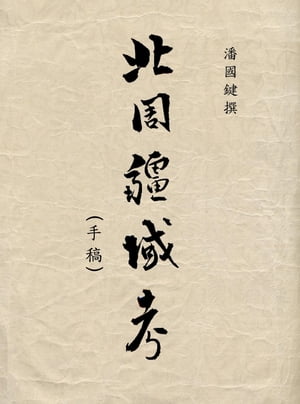 潘國鍵撰
北周疆域考
(手稿)